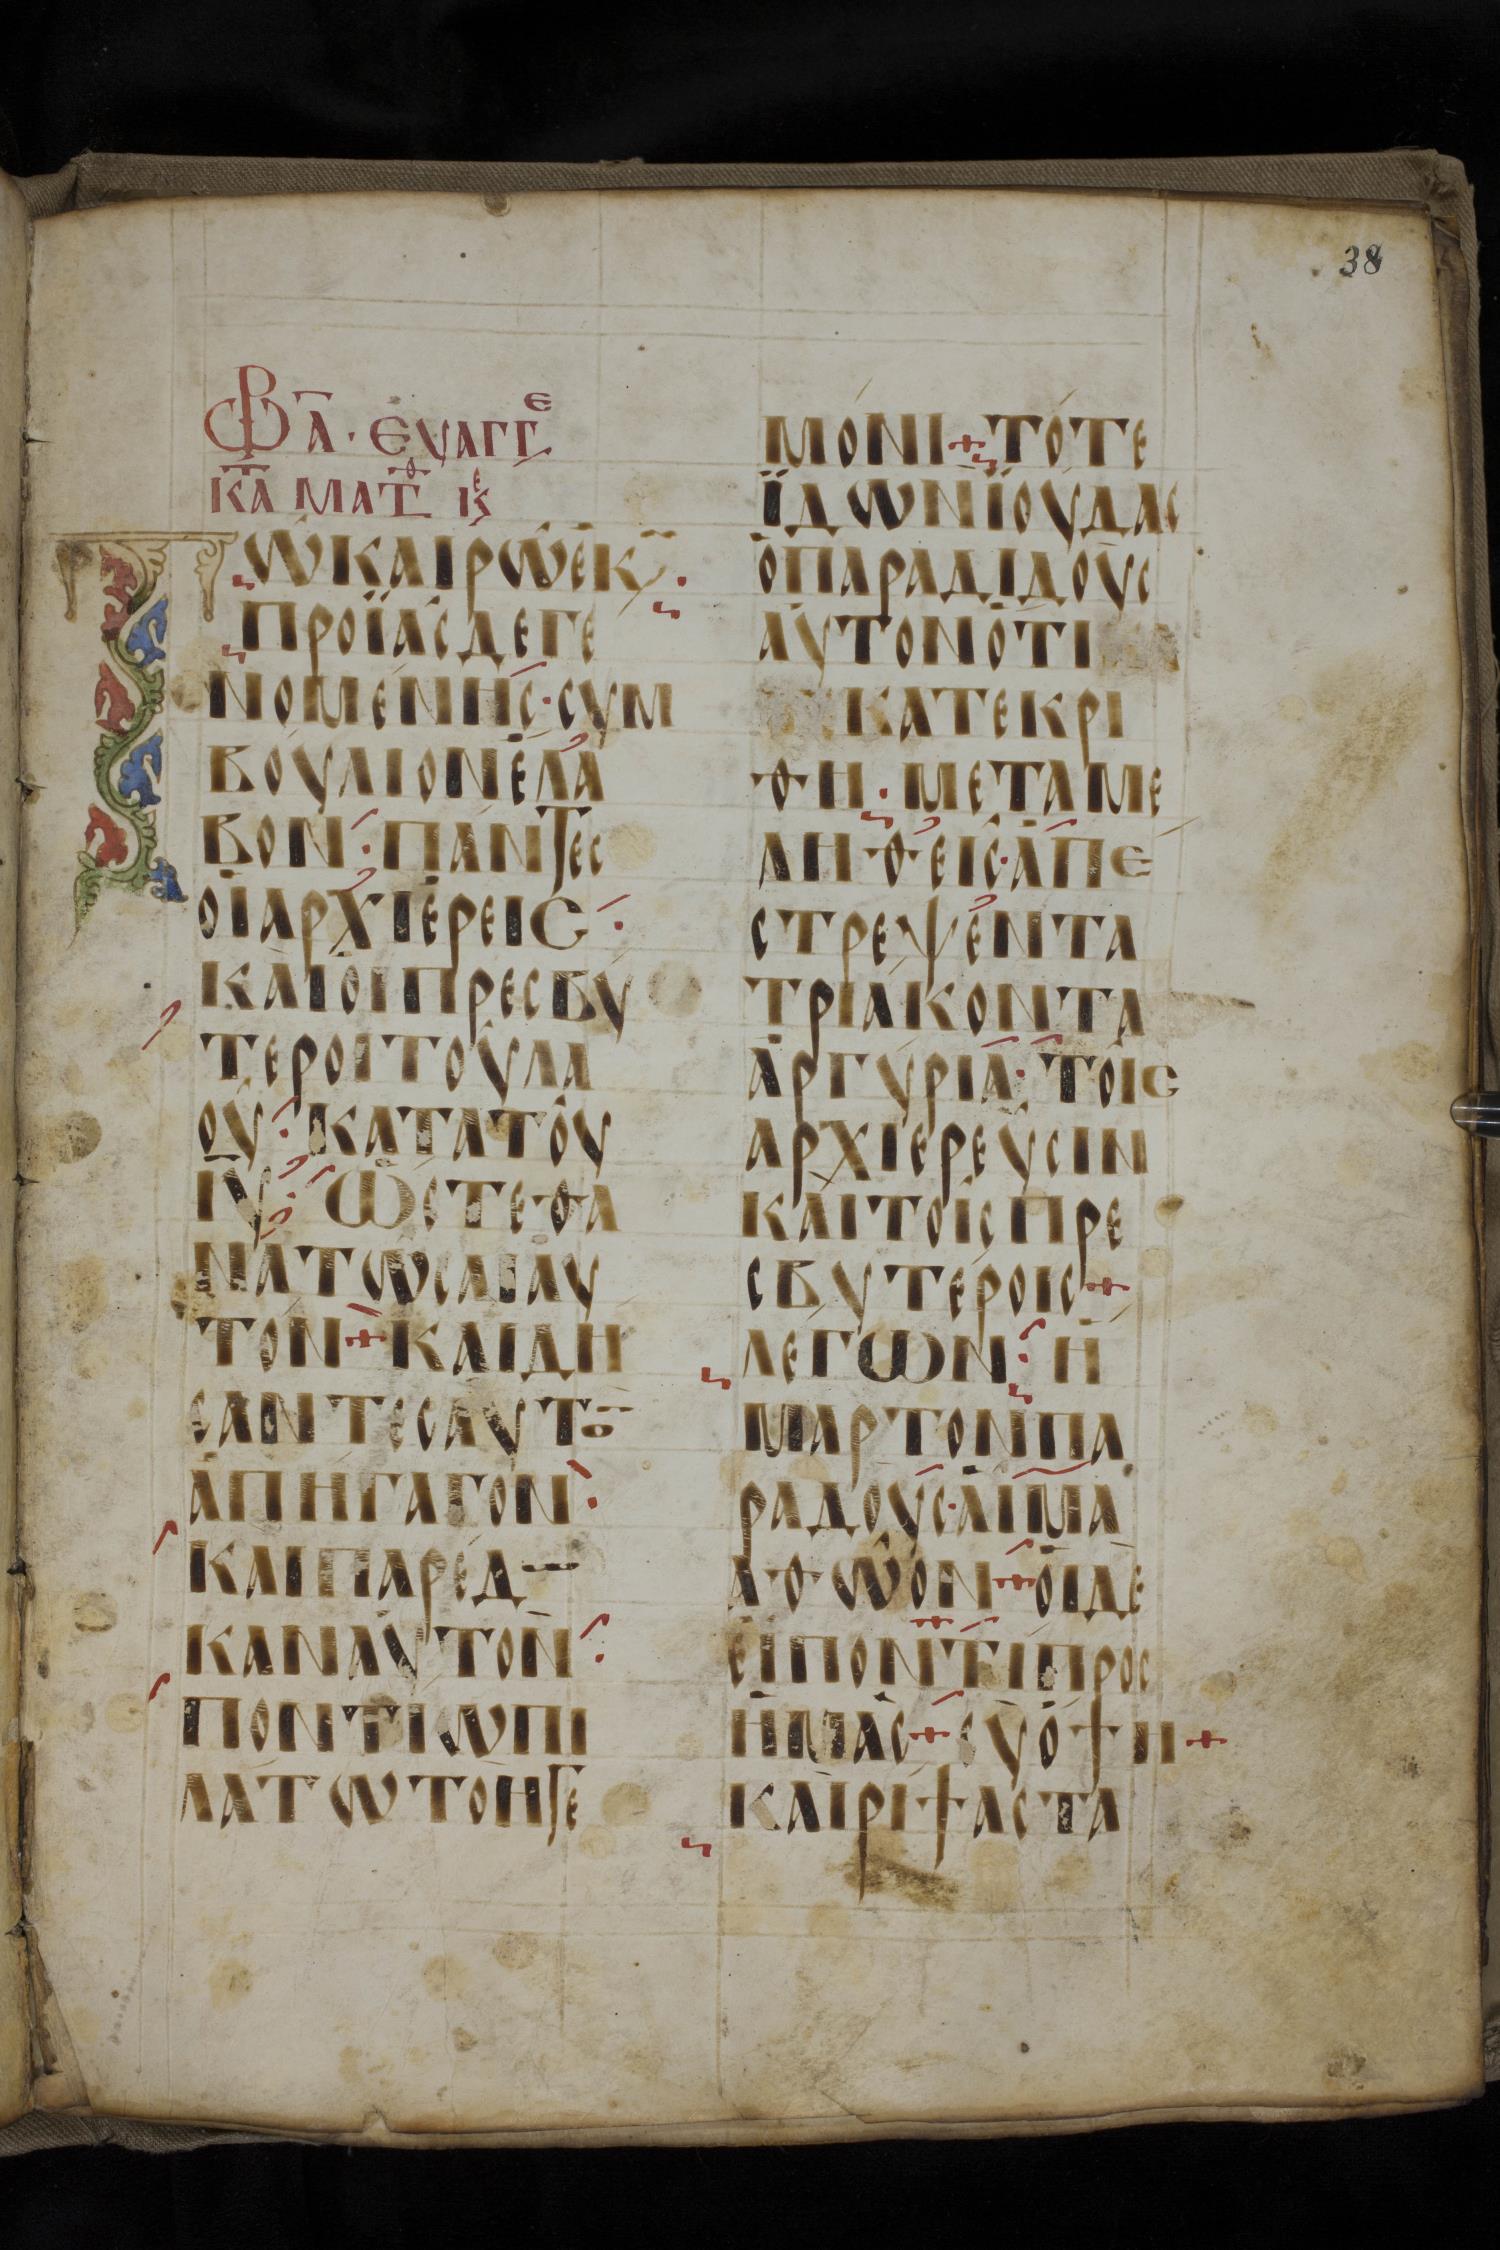 38
ΩΡΑ Α · ΕΥΑΓΓΕ
Κ̅Α̅ ΜΑΤΘ ΚΕ
ΤῼΚΑΙΡῼΕΚ
ΠΡΟΪΑΣΔΕΓΕ
ΝΟΜΕΝΗΣ·ΣΥΜ
ΒΟΥΛΙΟΝΕΛΑ
ΒΟΝ: ΠΑΝΤΕΣ
ΟΙΑΡΧΙΕΡΕΙΣ:
ΚΑΙΟΙΠΡΕΣΒΥ
ΤΕΡΟΙΤΟΥΛΑ
ΟΥ: ΚΑΤΑΤΟΥ
Ι̅Υ̅: ΩΣΤΕΘΑ
ΝΑΤΩΣΑΙΑΥ
ΤΟΝ+ΚΑΙΔΗ
ΣΑΝΤΕΣΑΥΤΟ̅
ΑΠΗΓΑΓΟΝ:
ΚΑΙΠΑΡΕΔΩ
ΚΑΝΑΥΤΟΝ:
ΠΟΝΤΙΩΠΙ
ΛΑΤΩΤΟΗΓΕ
ΜΟΝΙ+ΤΟΤΕ
ΪΔΩΝΪΟΥΔΑΣ
ΟΠΑΡΑΔΙΔΟΥΣ
ΑΥΤΟΝΟΤΙ
ΚΑΤΕΚΡΙ
ΘΗ·ΜΕΤΑΜΕ
ΛΗΘΕΙΣ·ΑΠΕ
ΣΤΡΕΨΕΝΤΑ
ΤΡΙΑΚΟΝΤΑ
ΑΡΓΥΡΙΑ:ΤΟΙΣ
ΑΡΧΙΕΡΕΥΣΙΝ
ΚΑΙΤΟΙΣΠΡΕ
ΣΒΥΤΕΡΟΙΣ+
ΛΕΓΩΝ:Η
ΜΑΡΤΟΝΠΑ
ΡΑΔΟΥΣ·ΑΙΜΑ
ΑΘΩΟΝ+ΟΙΔΕ
ΕΙΠΟΝΤΙΠΡΟΣ
ΗΜΑΣ+ΣΥΟΨΗ+
ΚΑΙΡΙΨΑΣΤΑ